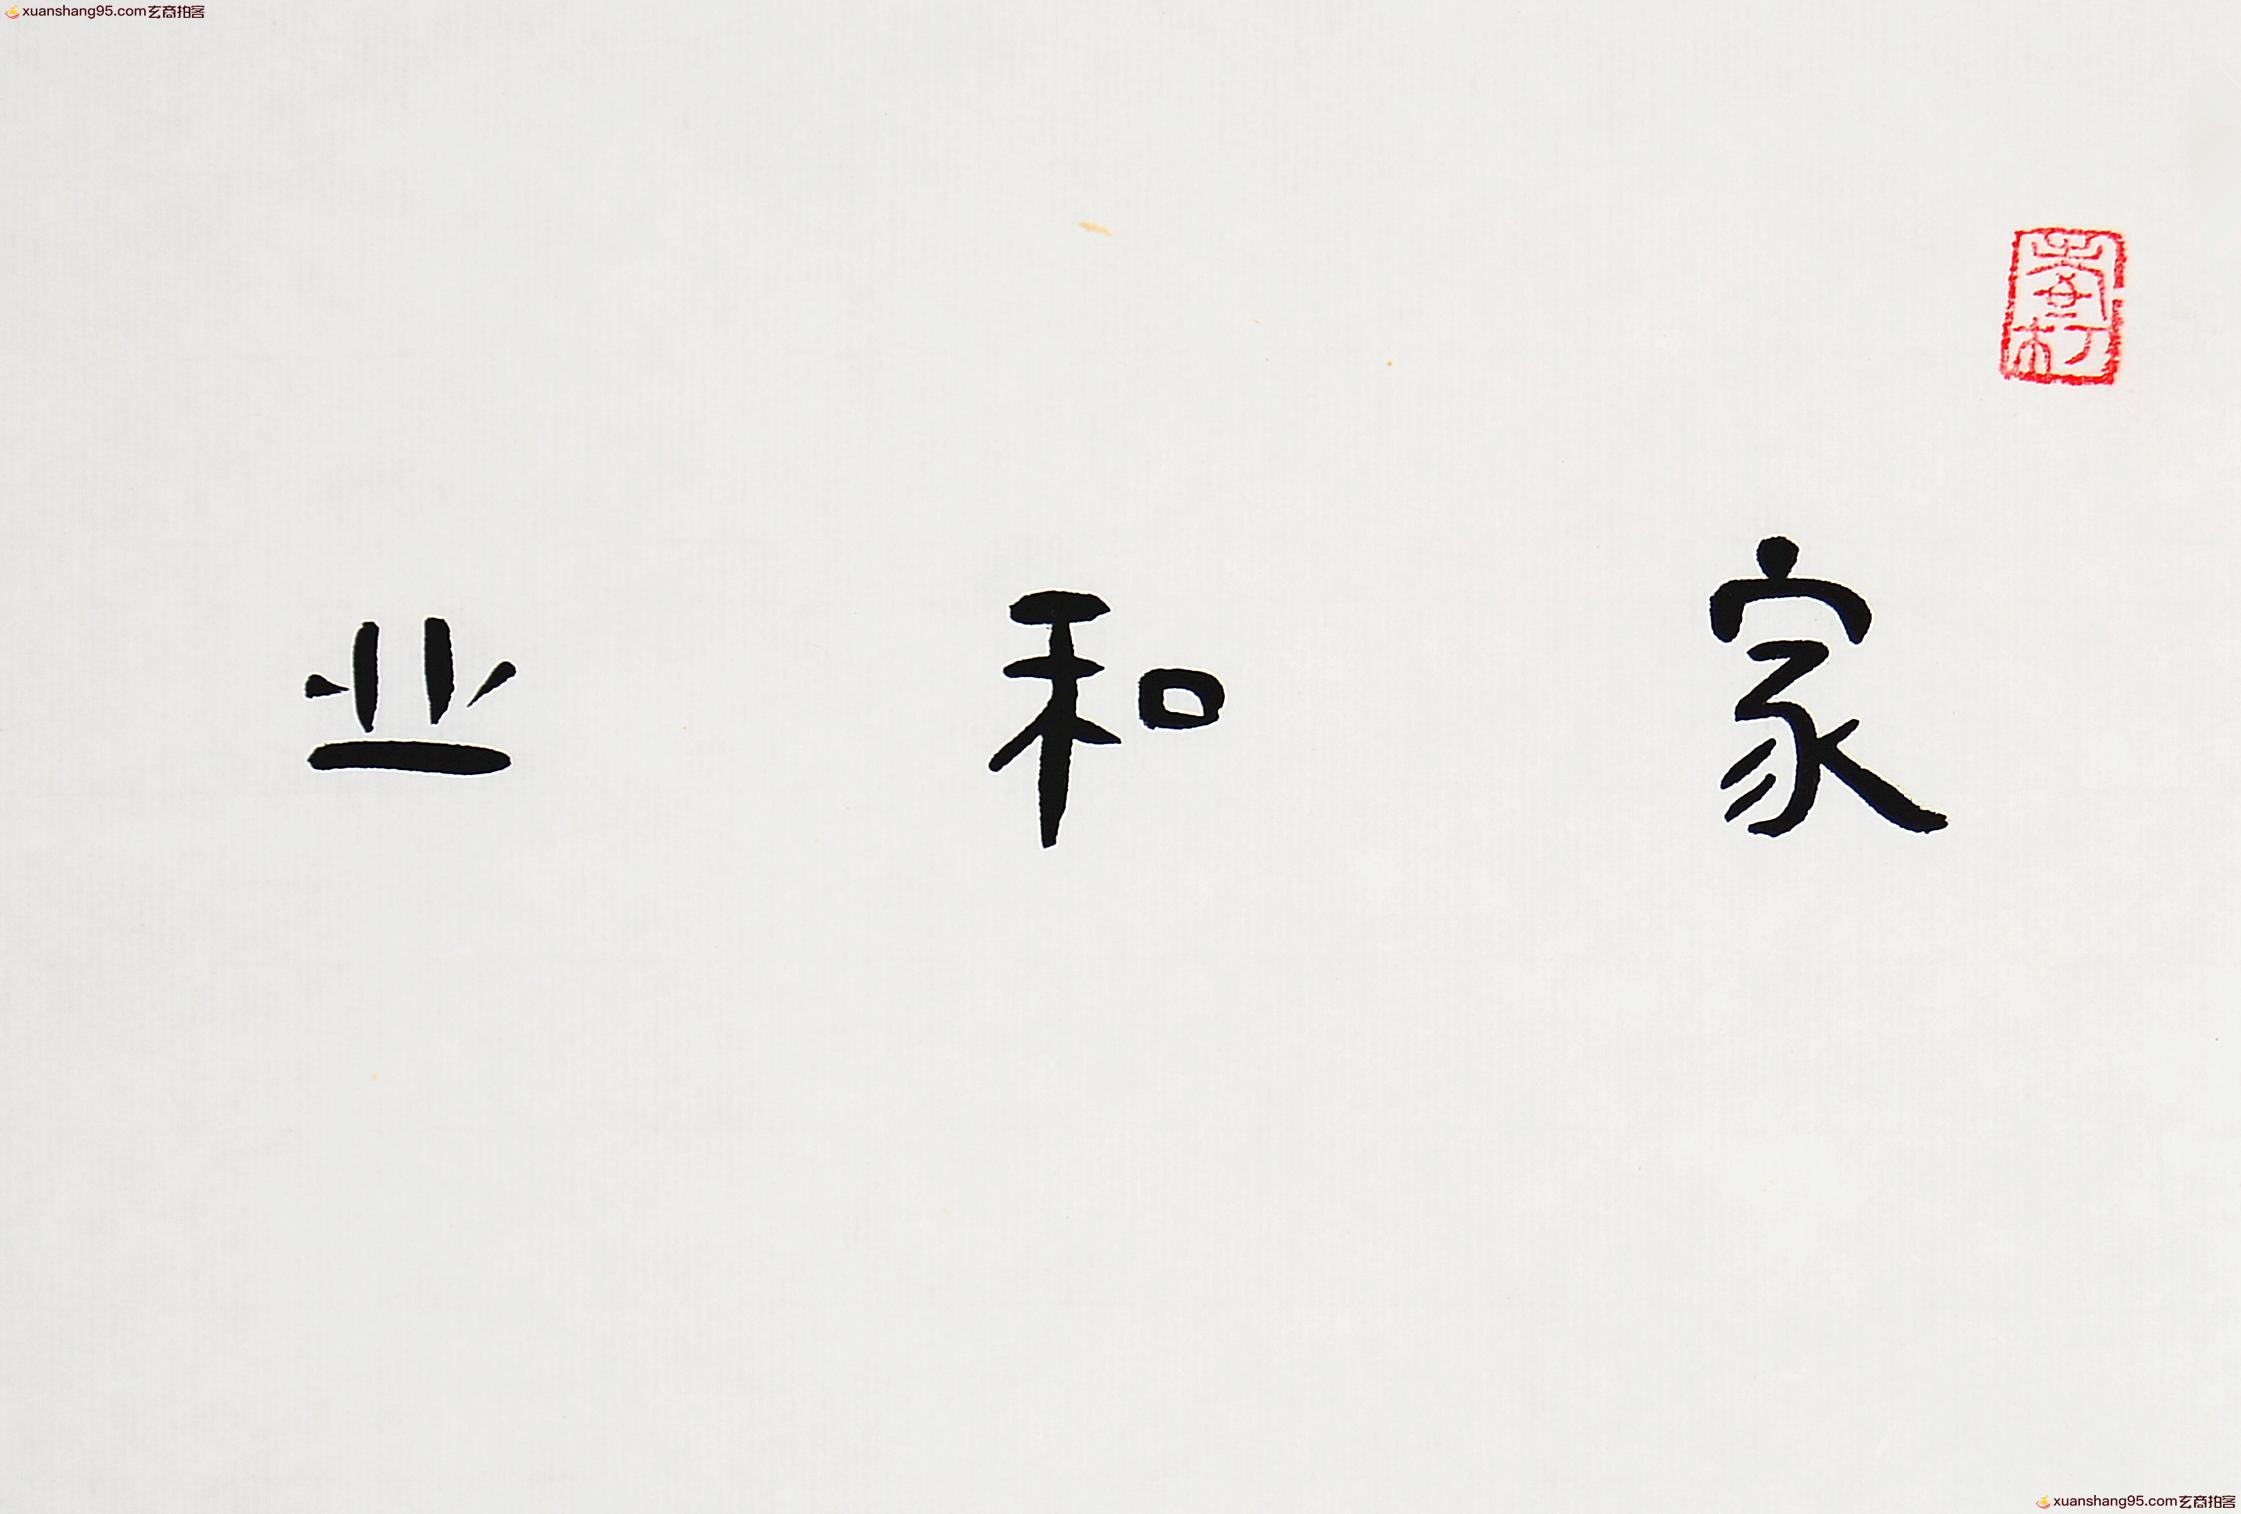 xuanshang95.com玄商拍客
家和业
xuanshang95.com玄商拍客